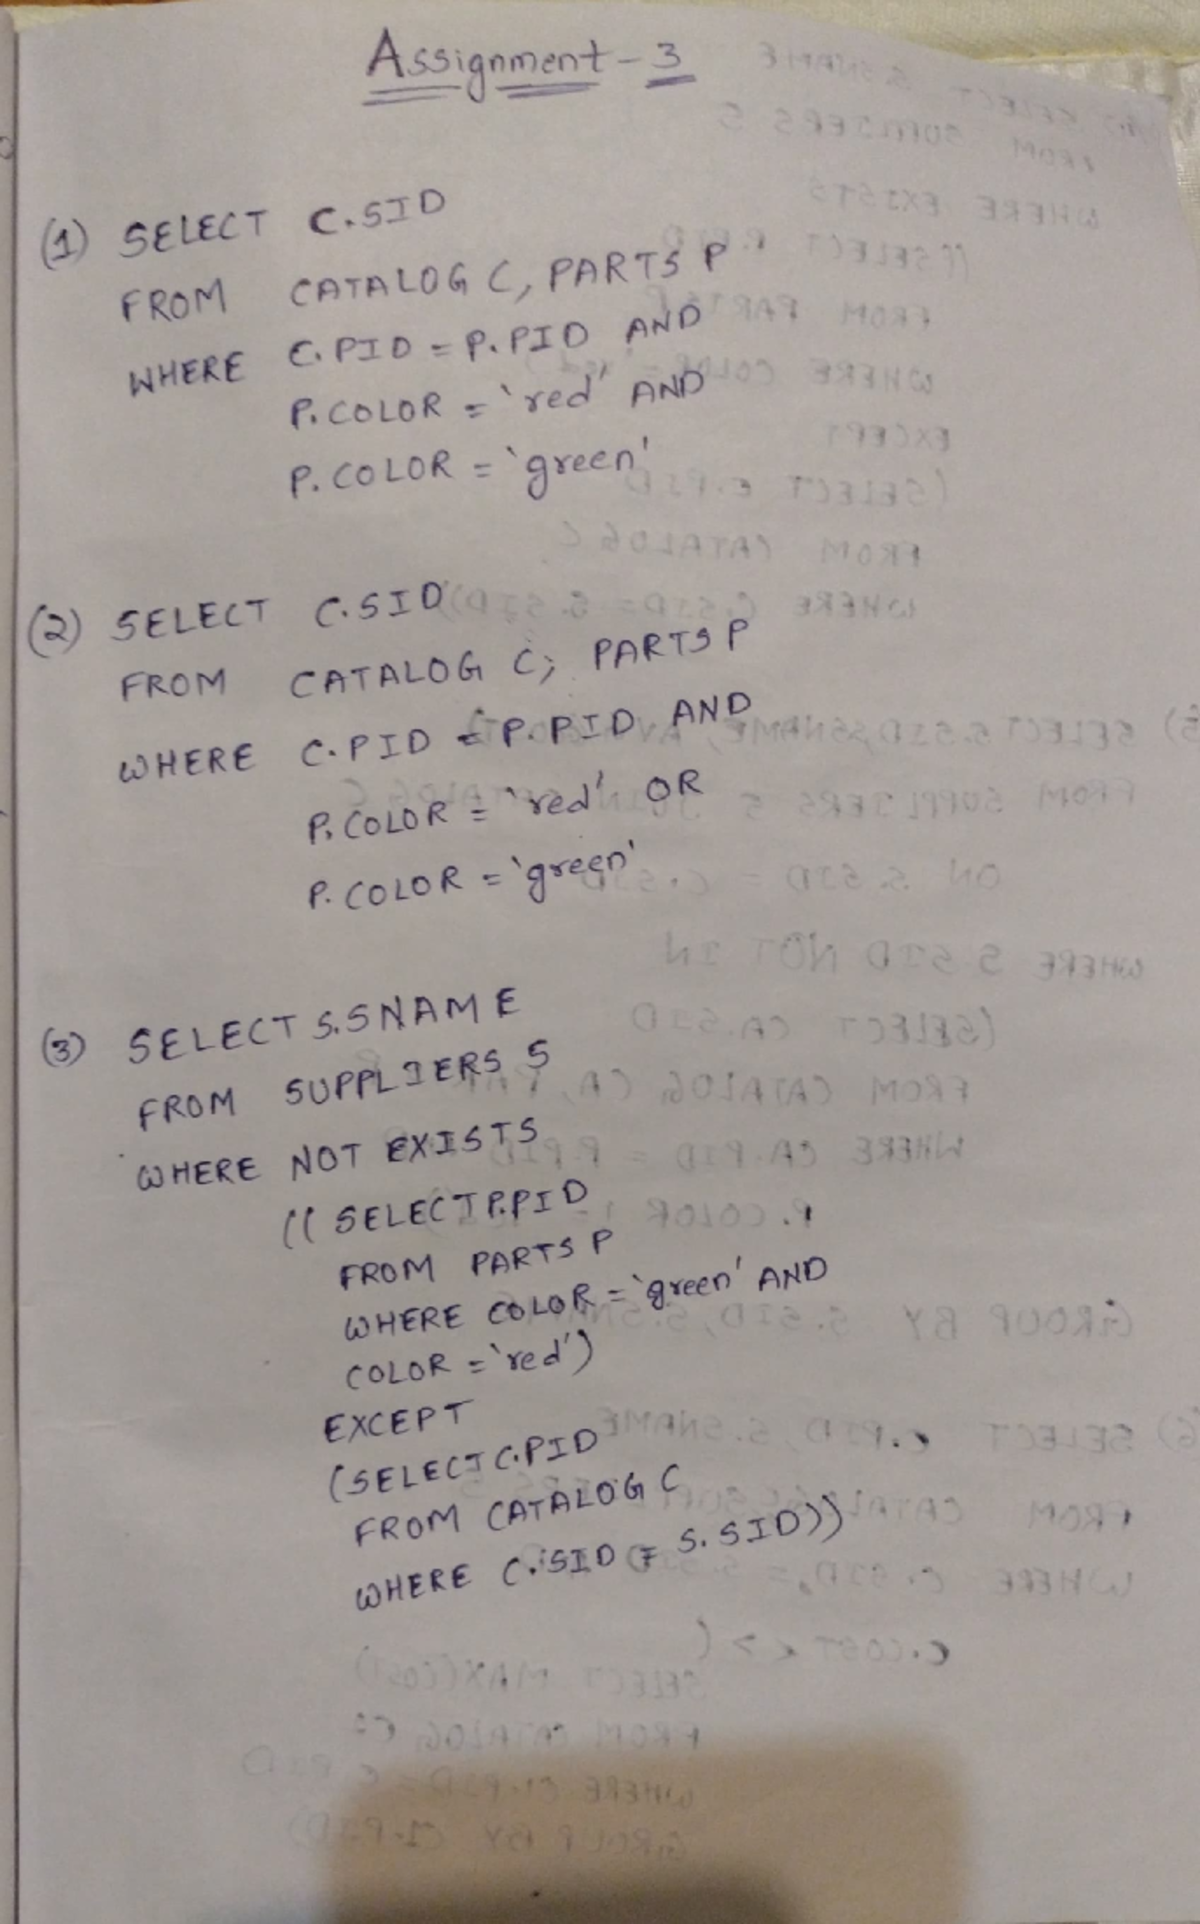 Assignment - 3
(1) SELECT C.SID
FROM CATALOG C, PARTS P
WHERE C.PID = P.PID AND
P.COLOR = 'red' AND
P.COLOR = 'green'
(2) SELECT C.SID
FROM CATALOG C, PARTS P
WHERE C.PID = P.PID AND
P.COLOR = 'red' OR
P.COLOR = 'green'
(3) SELECT S.SNAME
FROM SUPPLIERS S
WHERE NOT EXISTS
((SELECT P.PID
FROM PARTS P
WHERE COLOR = 'green' AND
COLOR = 'red')
EXCEPT
(SELECT C.PID
FROM CATALOG C
WHERE C.SID = S.SID))